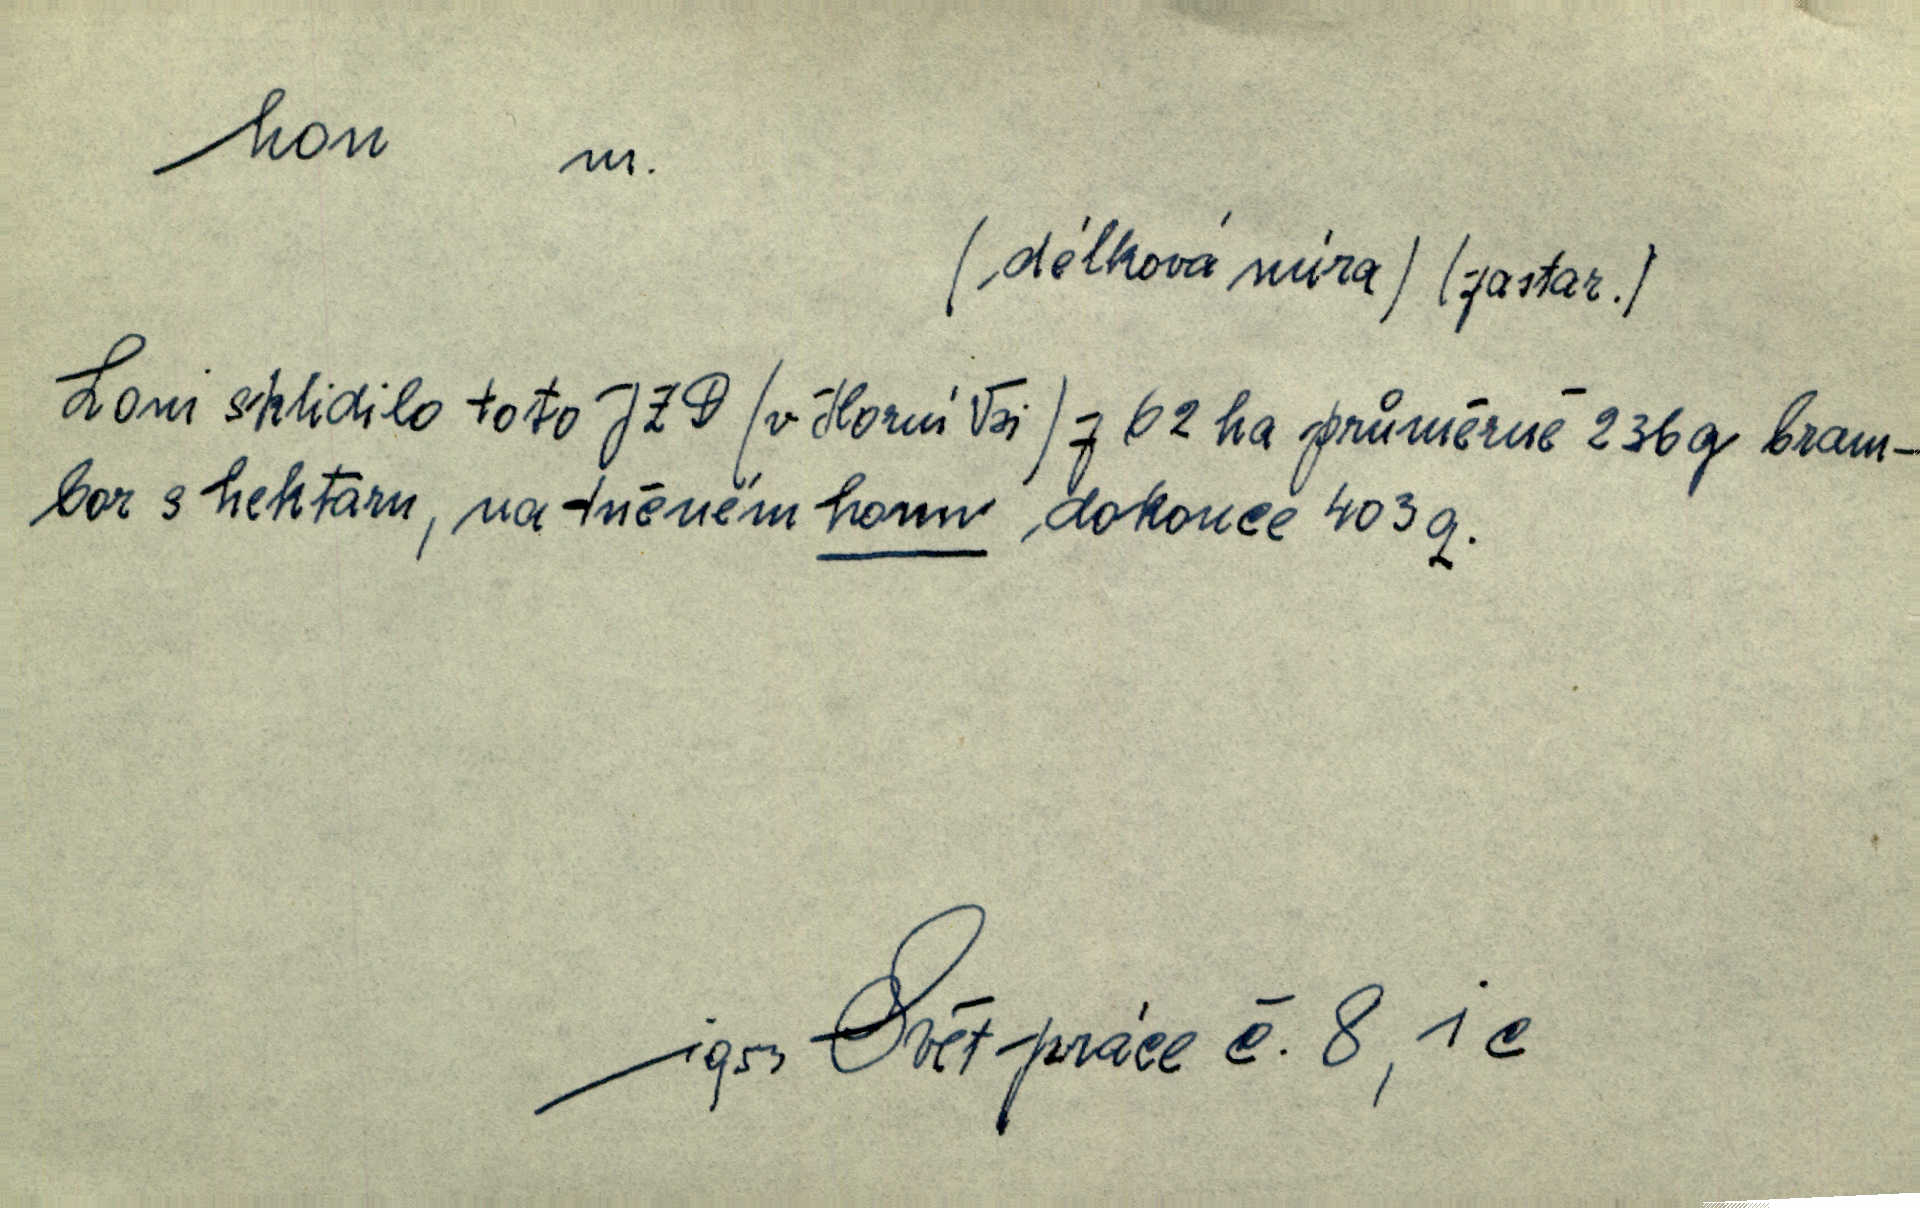 hon m.
(délková míra) (zastar.)
Loni sklidilo toto JZD (v Horní Vsi) z 62 ha průměrně 236 q bram-
bor s hektaru, na tněném honu dokonce 403 q.
1953 Svět práce č. 8, 1 c